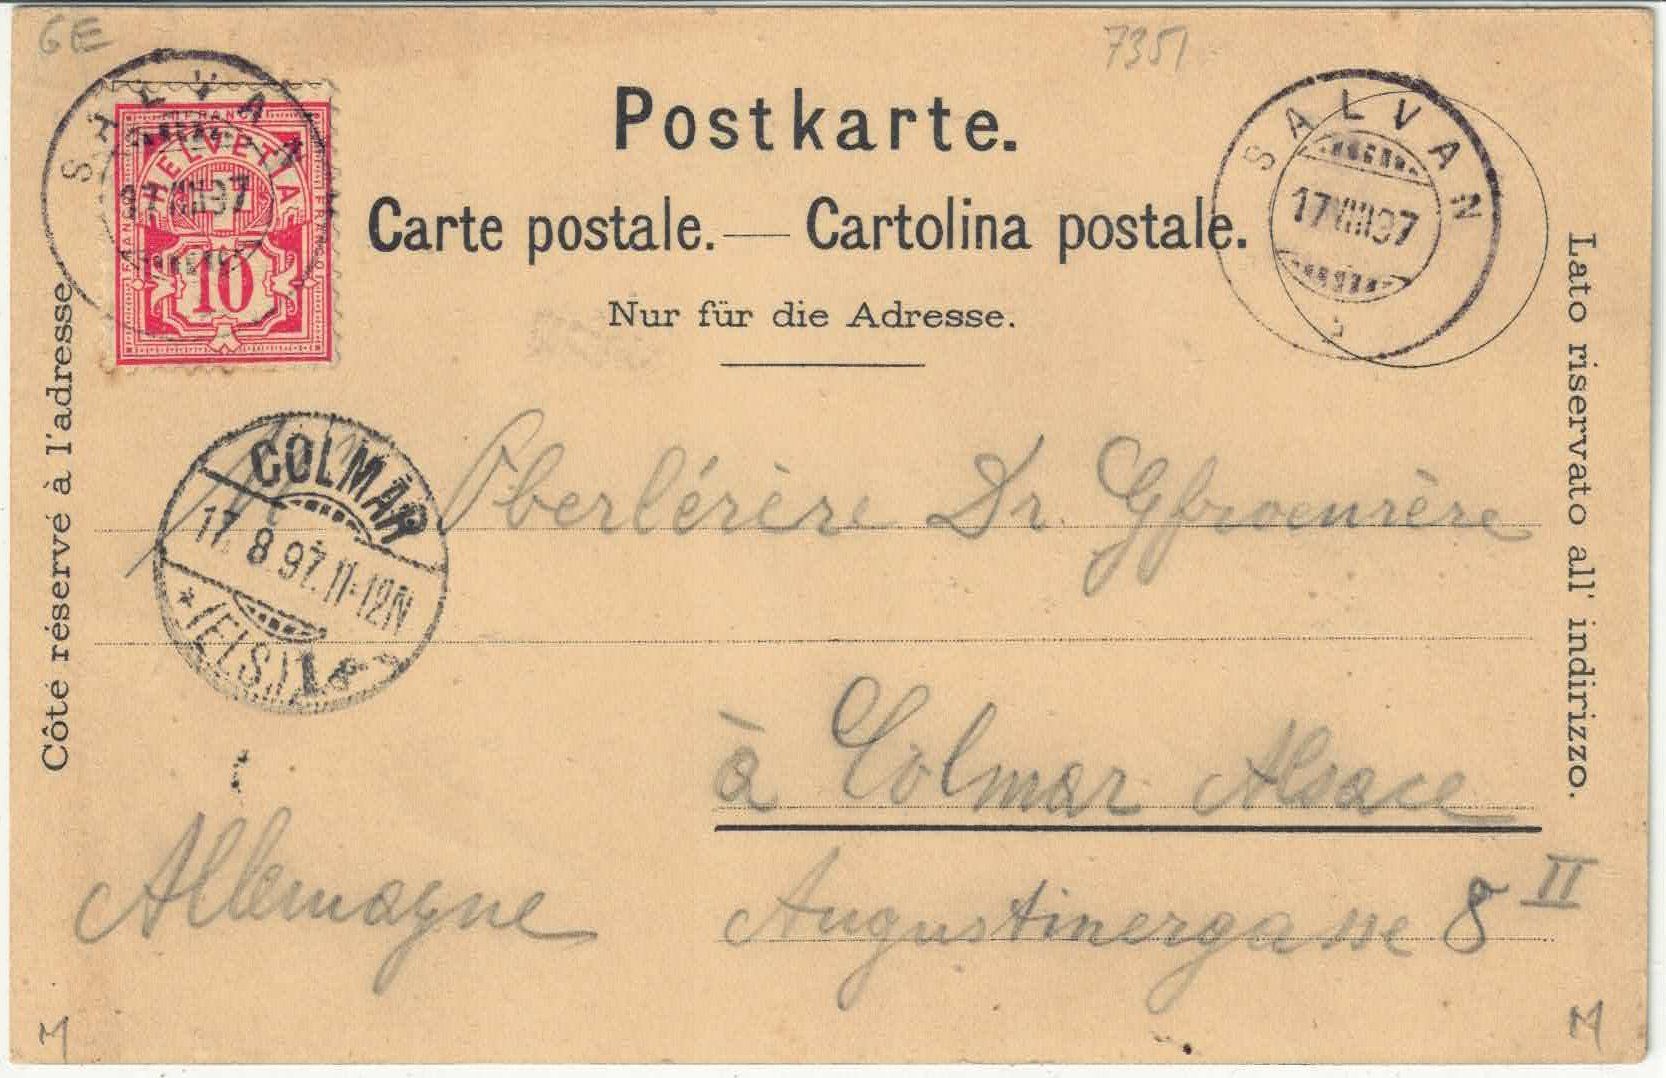 6E
7351
SALVAN
17 VIII 97
FRANCO
HELVETIA
FRANCO
FRANCO
10
Postkarte.
Carte postale. — Cartolina postale.
Nur für die Adresse.
SALVAN
17 VIII 97
Côté réservé à l'adresse.
Lato riservato all' indirizzo.
COLMAR
17. 8 97. 11-12N
* (ELS.) 1
Dr.
à Colmar Alsace
Allemagne
Augustinergasse 8 II
M
M